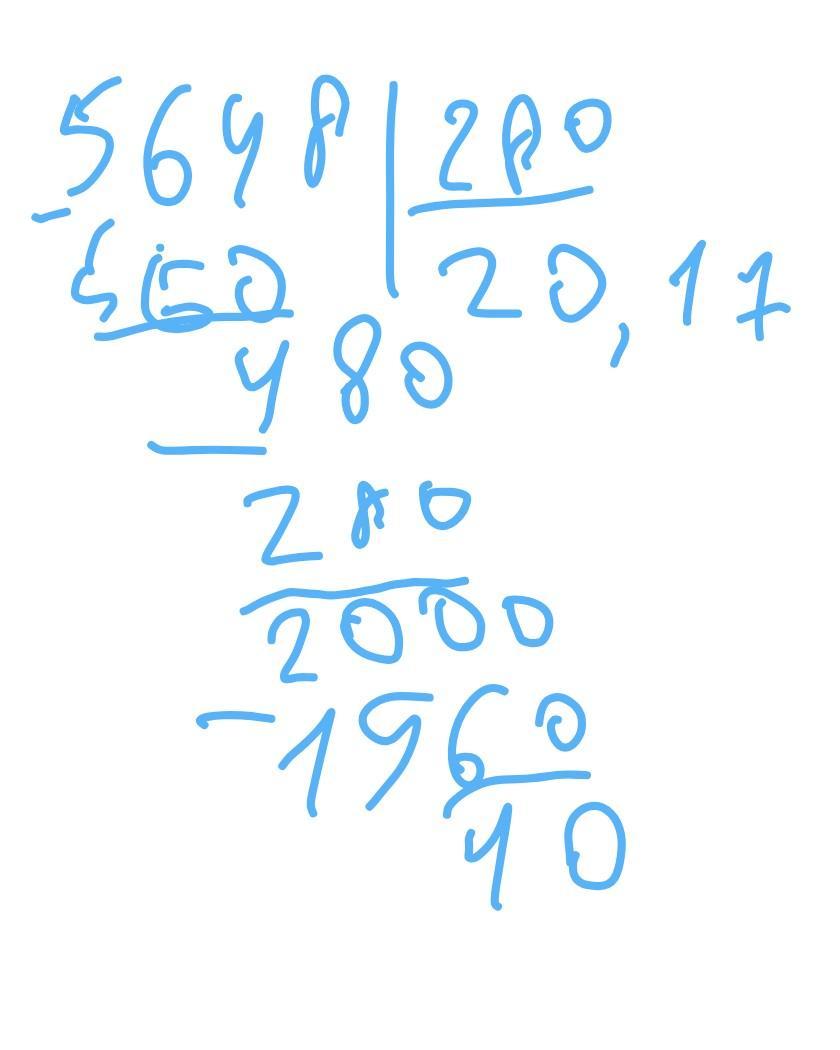 5648 | 280
- 560 20,17
480
- 280
2000
- 1960
40